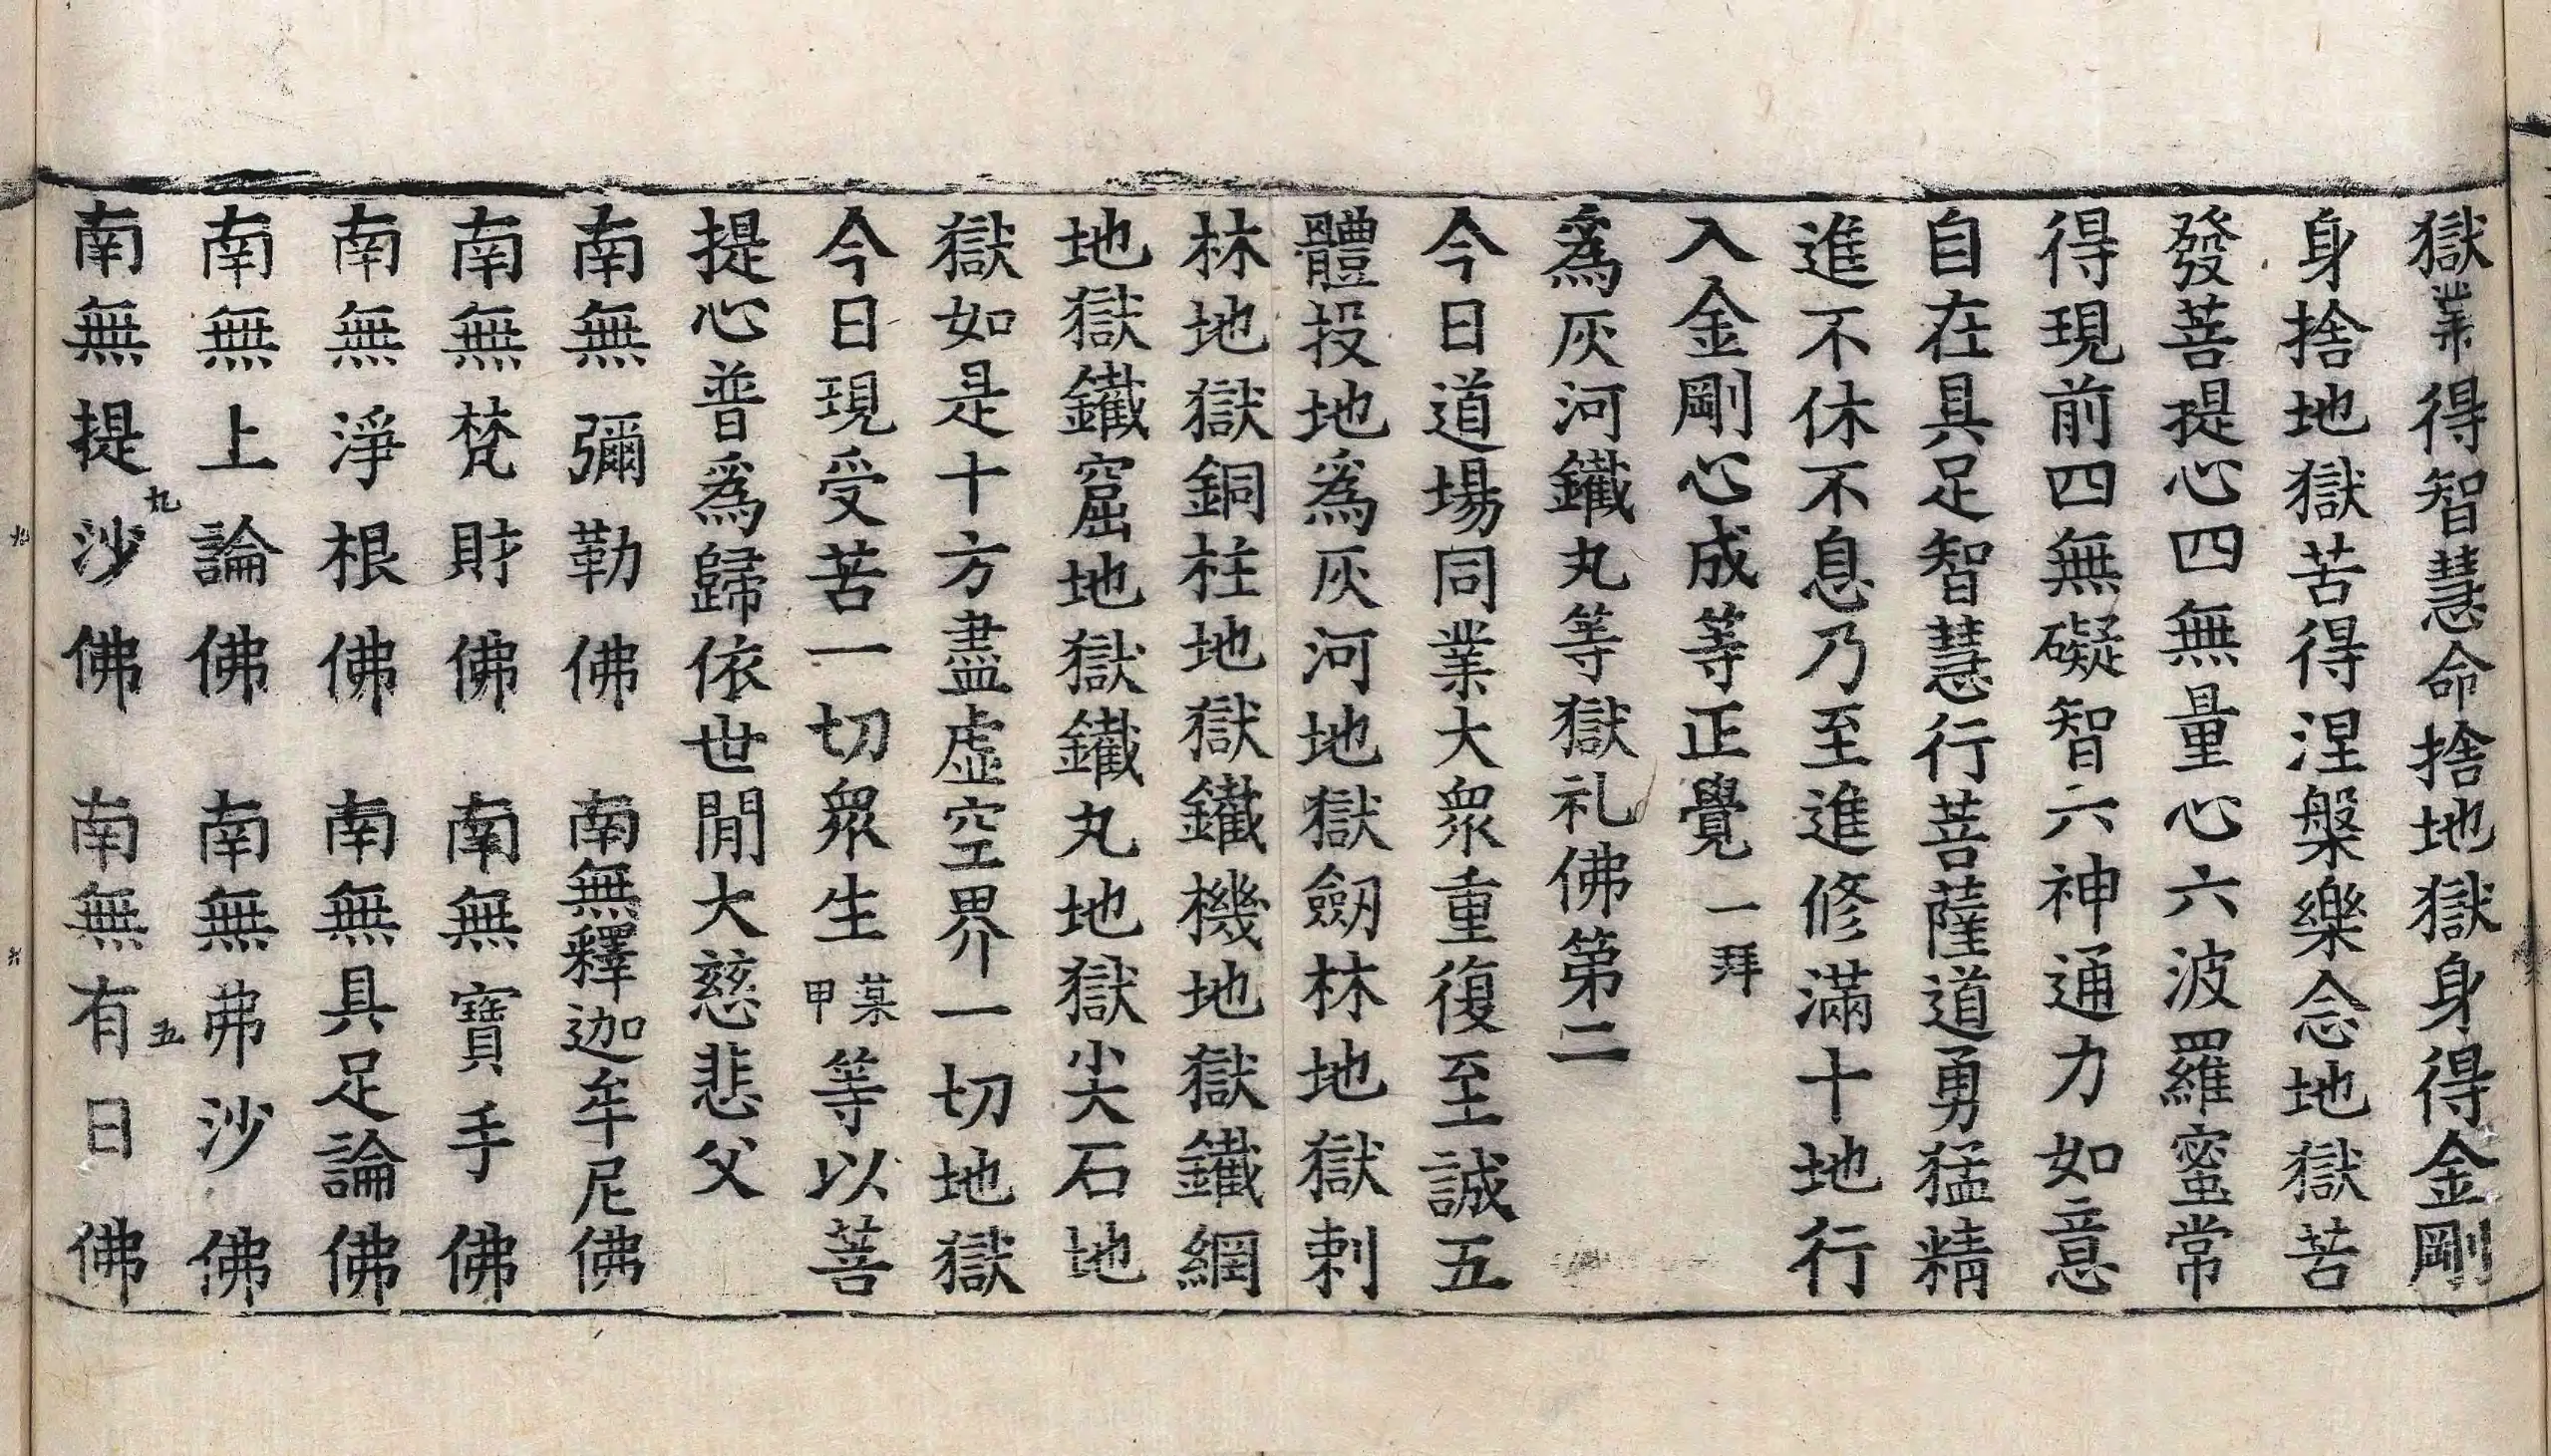 獄業得智慧命捨地獄身得金剛
身捨地獄苦得涅槃樂念地獄苦
發菩提心四無量心六波羅蜜常
得現前四無礙智六神通力如意
自在具足智慧行菩薩道勇猛精
進不休不息乃至進修滿十地行
入金剛心成等正覺一拜
爲灰河鐵丸等獄礼佛第二
今日道場同業大衆重復至誠五
體投地爲灰河地獄劒林地獄刺
林地獄銅柱地獄鐵機地獄鐵網
地獄鐵窟地獄鐵丸地獄尖石地
獄如是十方盡虛空界一切地獄
今日現受苦一切衆生某甲等以菩
提心普爲歸依世閒大慈悲父
南無彌勒佛 南無釋迦牟尼佛
南無梵財佛 南無寶手佛
南無淨根佛 南無具足論佛
南無上論佛 南無弗沙佛
九 五
南無提沙佛 南無有日佛